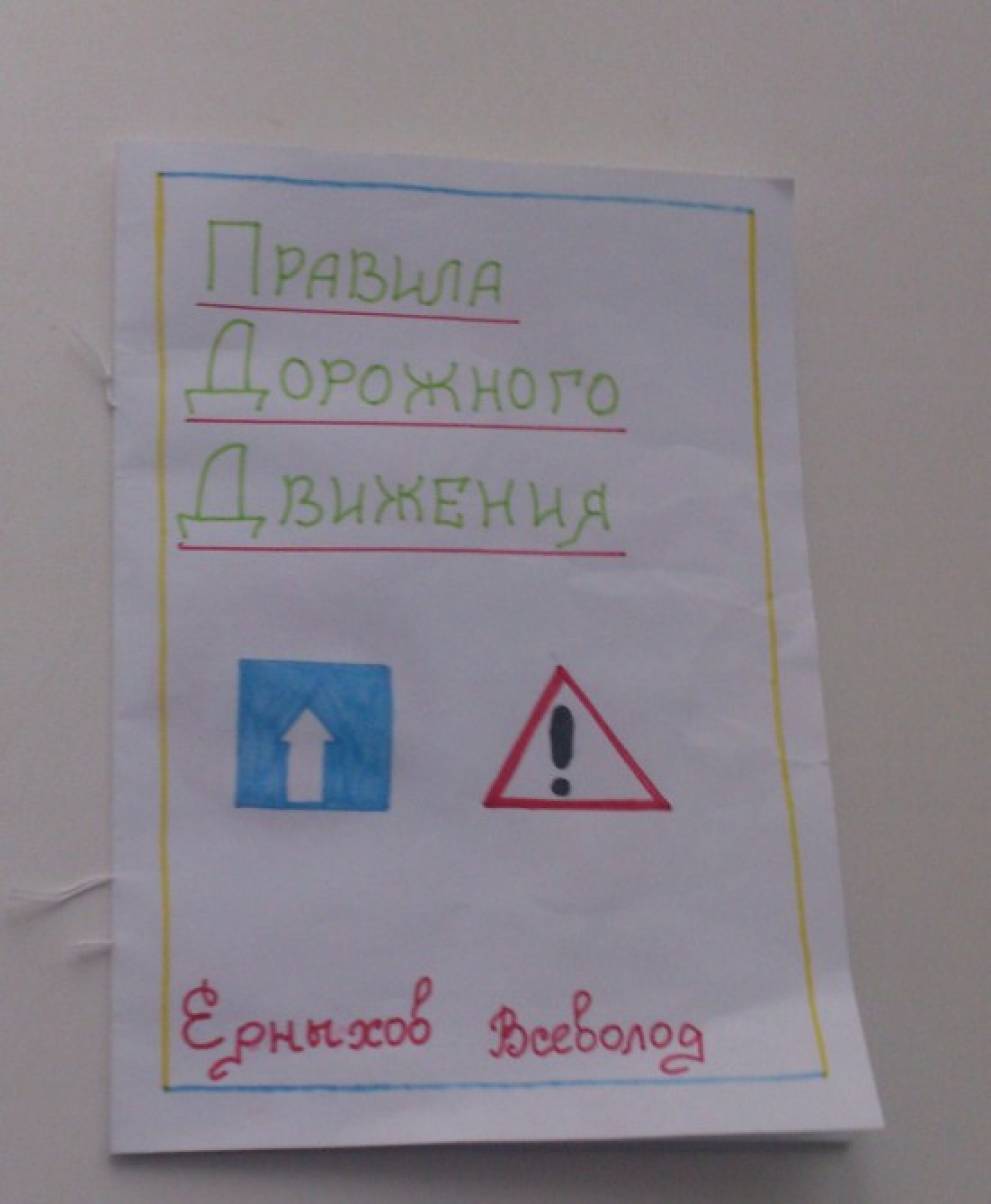 Правила
Дорожного
Движения
!
Ерныхов Всеволод